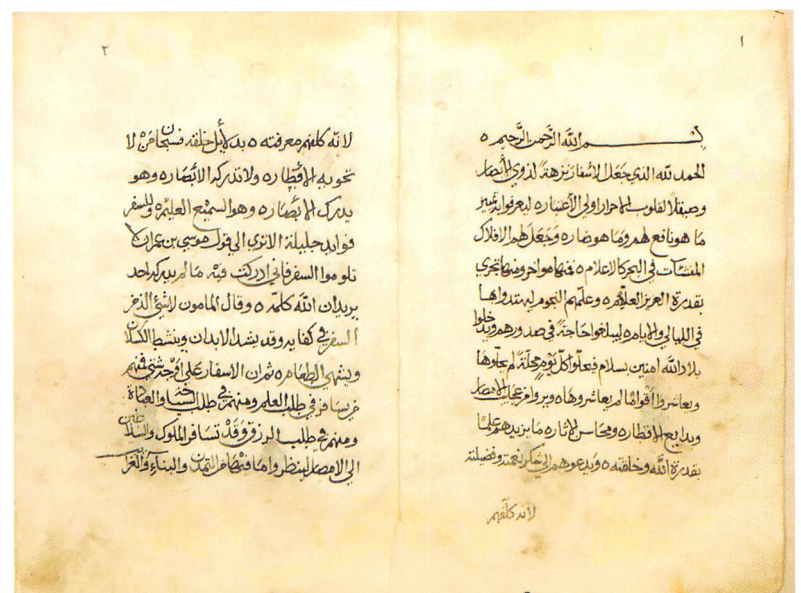 ١
بسم الله الرحمن الرحيم ٥
الحمد لله الذي جعل الأسفار نزهة لذوي الأبصار
وصيقلا لقلوب الاحرار اولي الأعتباره ليعرفوا بد تمييز
ما هو نافع لهم وما هو ضاره وجعل لهم الافلاك
المنشآت في البحر كالاعلام ٥ فمنها مواخر ومنها تجري
بقدرة العزيز العلام ٥ وعلمهم النجوم ليهتدوا بها
في الليالي والايام ٥ ليبلغوا حاجة في صدورهم ويدخلوا
بلاد الله امنين بسلام فيعلوا كل يوم محلة لم يعلوها
ويعاشروا أقواما لم يعاشروها ٥ ويروا من عجايب الامصار
وبدايع الاقطاره ومحاسن الاثاره ما يزيدهم علما
بقدرة الله وخلقته ٥ ويدعوهم الى شكر نعمته وفضيلته
لانه كلفهم
٢
لانه كلفهم معرفته ٥ بدلايل خلقه فسبحان من لا
تحويه الأقطاره ولا تدركه الأبصاره وهو
يدرك الأبصاره وهو السميع العليم ٥ وللسفر
فوايد جليلة الا ترى الى قول موسى بن عمران لا
تلوموا السفر فاني ادركت فيه ما لم يدركه احد
يريد ان الله كلمه ٥ وقال المامون لا شي الذ من
السفر في كفايه وقد يشد الابدان وينشط الكسلان
ويشهي الطعام ٥ ثم ان الاسفار على اوجه شتى فمنهم
من يسافر في طلب العلم ومنهم في طلب السياحة والعبادة
ومنهم في طلب الرزق وقد تسافر الملوك والسلاطين
الى الامصار لينظروا ما فيها من التمدن والبناء و